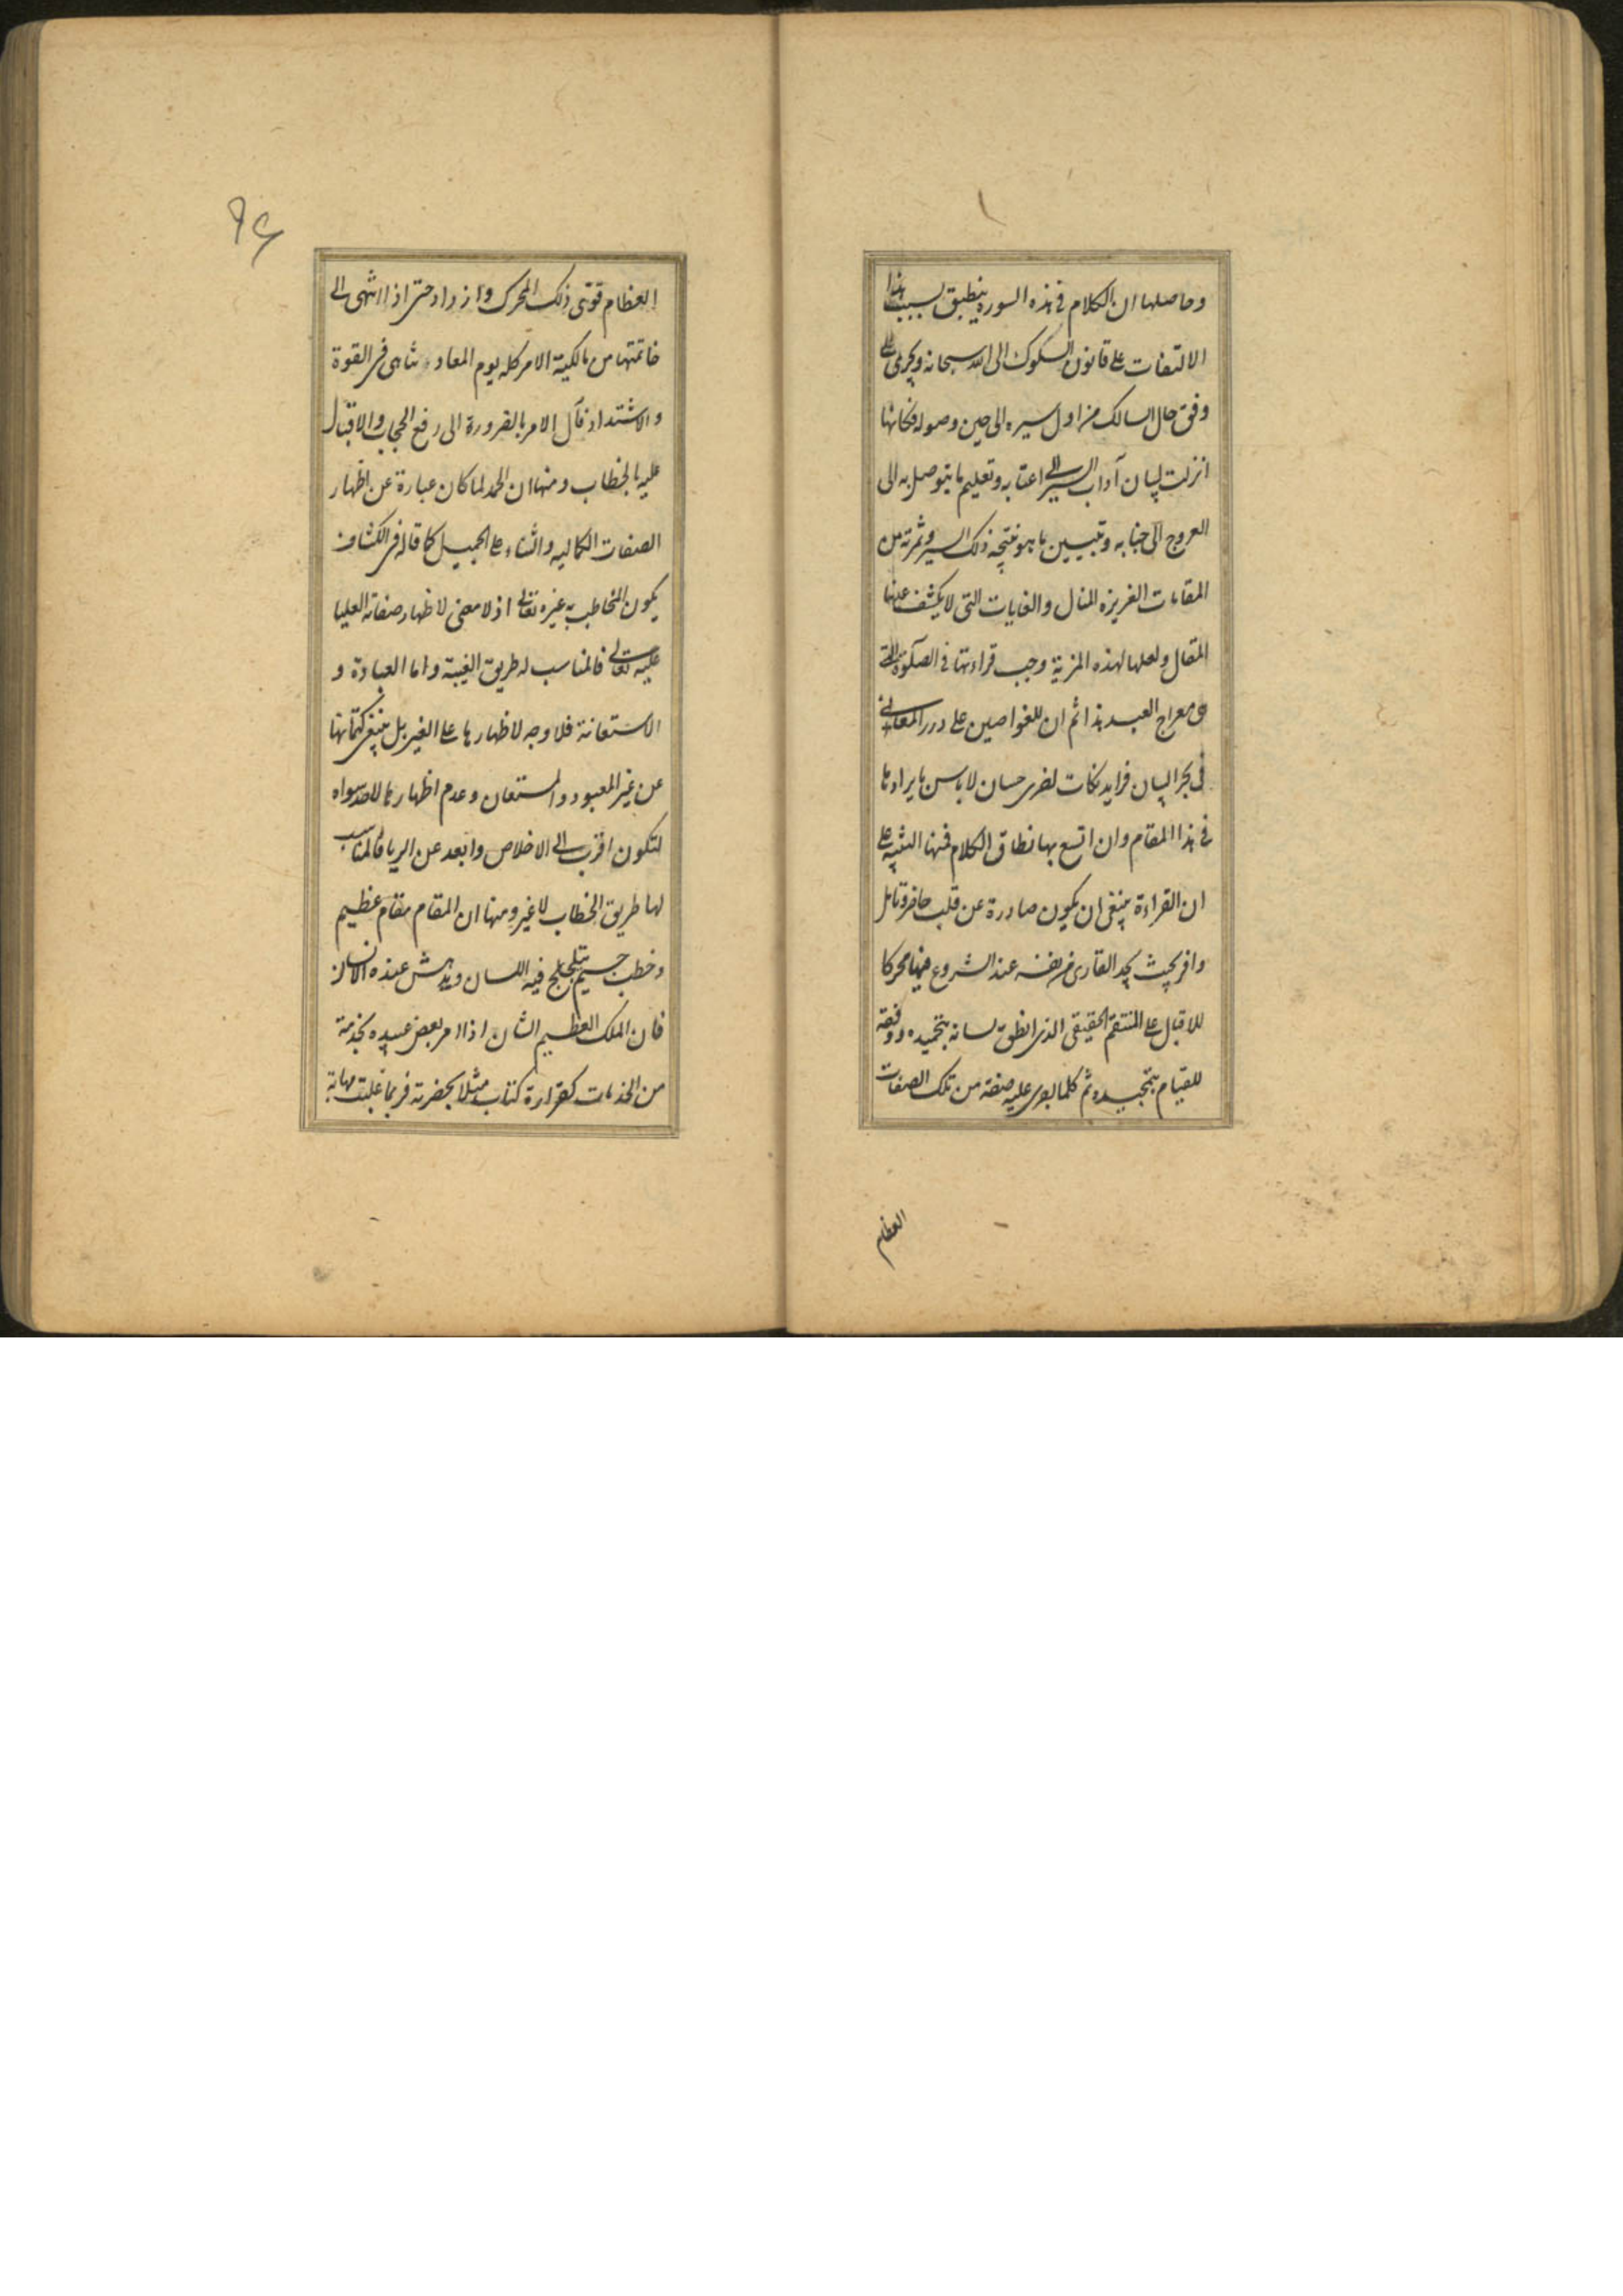 وحاصلها ان الكلام في هذه السورة ينطبق بسبب هذا
الالتفات على قانون السلوك الى الله سبحانه ويجرى على
وفق حال السالك من اول سيره الى حين وصوله فكانها
انزلت لبيان آداب السير الى اعتابه وتعليم ما يتوصل به الى
العروج الى جنابه وتبيين ما هو نتيجه ذلك السير وثمرته من
المقامات العزيزه المنال والغايات التى لا يكشف عنها
المقال ولعلها لهذه المزية وجب قراءتها في الصلوة التى
هى معراج العبد هذا ثم ان للغواصين على درر المعانى
فى بحر البيان فرايد نكات اخرى حسان لا باس بايرادها
في هذا المقام وان اتسع بها نطاق الكلام فمنها التنبيه على
ان القراءة ينبغى ان يكون صادرة عن قلب حاضر وتامل
وافر بحيث يجد القارى من نفسه عند الشروع فيها محركا
للاقبال على المنعم الحقيقى الذى انطق لسانه بتحميده ووفقه
للقيام بتمجيده ثم كلما اجرى عليه صفة من تلك الصفات
العظام
٩٤
العظام قوى ذلك المحرك وازداد حتى اذا انتهى الى
خاتمتها من مالكية الامر كله يوم المعاد وتناهى فى القوة
والاشتداد فآل الامر بالضرورة الى رفع الحجاب والاقبال
عليه بالخطاب ومنها ان الحمد لما كان عبارة عن اظهار
الصفات الكماليه والثناء على الجميل كما قاله فى الكشاف
يكون المخاطب به غيره تعالى اذ لا معنى لاظهار صفاته العليا
عليه تعالى فالمناسب له طريق الغيبة واما العبادة و
الاستعانة فلا وجه لاظهارها على الغير بل ينبغى كتمانها
عن غير المعبود والمستعان وعدم اظهارها لاحد سواه
لتكون اقرب الى الاخلاص وابعد عن الريا فالمناسب
لها طريق الخطاب لا غير ومنها ان المقام مقام عظيم
وخطب جسيم يتلجلج فيه اللسان ويدهش عنده الانسان
فان الملك العظيم الشان اذا امر بعض عبيده بخدمة
من الخدمات كقراءة كتاب مثلا بحضرته فربما غلبت مهابة